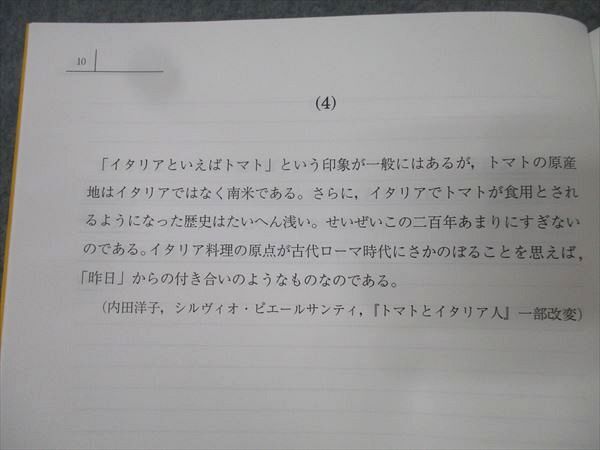 10
(4)
「イタリアといえばトマト」という印象が一般にはあるが，トマトの原産
地はイタリアではなく南米である。さらに，イタリアでトマトが食用とされ
るようになった歴史はたいへん浅い。せいぜいこの二百年あまりにすぎない
のである。イタリア料理の原点が古代ローマ時代にさかのぼることを思えば，
「昨日」からの付き合いのようなものなのである。
（内田洋子，シルヴィオ・ピエールサンティ，『トマトとイタリア人』一部改変）